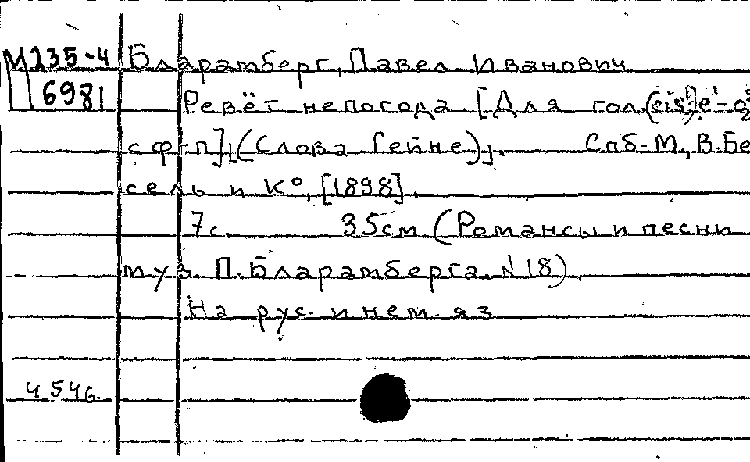 М235-4 Бларамберг, Павел Иванович
6981 Ревёт непогода [Для гол. (cis¹-e²-
с ф-п]. (Слова Гейне). Спб.-М., В. Бес
сель и К°, [1898].
7с. 35см (Романсы и песни
муз. П. Бларамберга. N 18)
На рус. и нем. яз.
4546